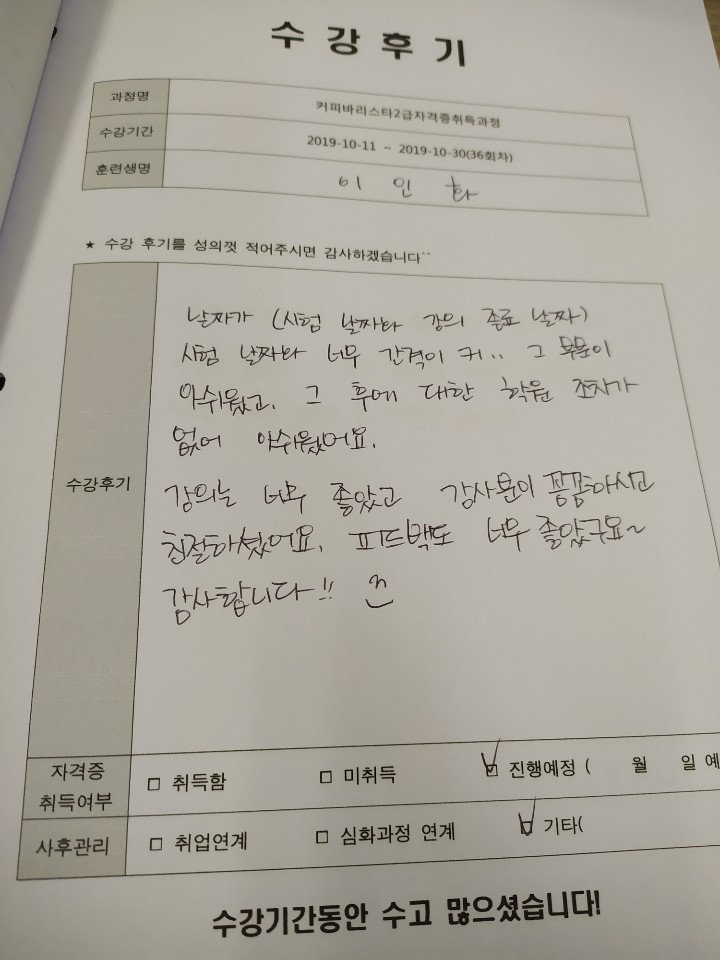 수강후기
과정명 커피바리스타2급자격증취득과정
수강기간 2019-10-11 ~ 2019-10-30(36회차)
훈련생명 이인화
★ 수강 후기를 성의껏 적어주시면 감사하겠습니다^^
수강후기
날짜가 (시험 날짜와 강의 종료 날짜)
시험 날짜와 너무 간격이 커.. 그 부분이
아쉬웠고, 그 후에 대한 학원 조차가
없어 아쉬웠어요.
강의는 너무 좋았고 강사분이 꼼꼼하시고
친절하셨어요. 피드백도 너무 좋았구요~
감사합니다!!
자격증 취득여부 □ 취득함 □ 미취득 □ 진행예정 ( 월 일 예
사후관리 □ 취업연계 □ 심화과정 연계 □ 기타(
수강기간동안 수고 많으셨습니다!